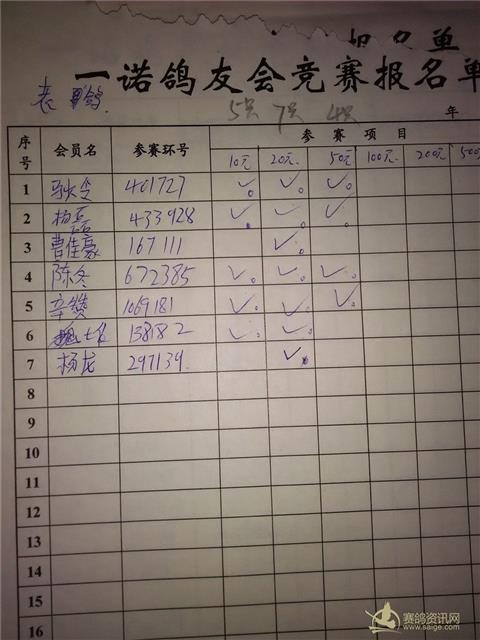 报名单
一诺鸽友会竞赛报名单
年
序号 会员名 参赛环号 参赛项目
10元 20元 50元 100元 200元 500
1 401727 ✓ ✓ ✓
2 杨磊 433928 ✓ ✓ ✓
3 曹佳豪 167111 ✓
4 陈冬 672385 ✓ ✓ ✓
5 辛赞 1069181 ✓ ✓ ✓
6 138182 ✓ ✓
7 杨龙 297139 ✓
8
9
10
11
12
13
14
15
16
赛鸽资讯网
www.saige.com